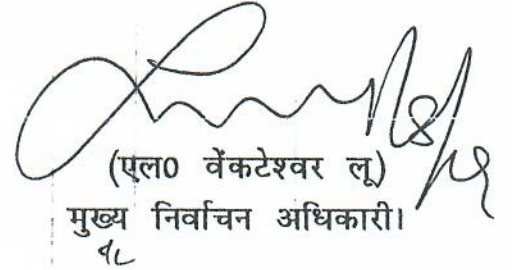 (एल0 वेंकटेश्वर लू)
मुख्य निर्वाचन अधिकारी।